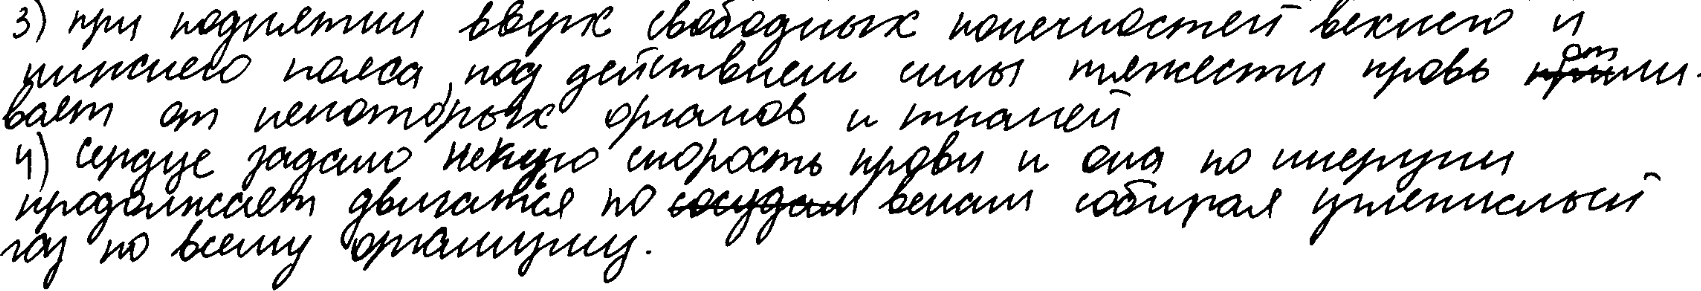 3) при поднятии вверх свободных конечностей векнего и
нижнего пояса под действием силы тяжести кровь отли-
вает от некоторых органов и тканей
4) Сердце задало некую скорость крови и она по инерции
продолжает двигаться по венам собирая углекислый
газ по всему организму.